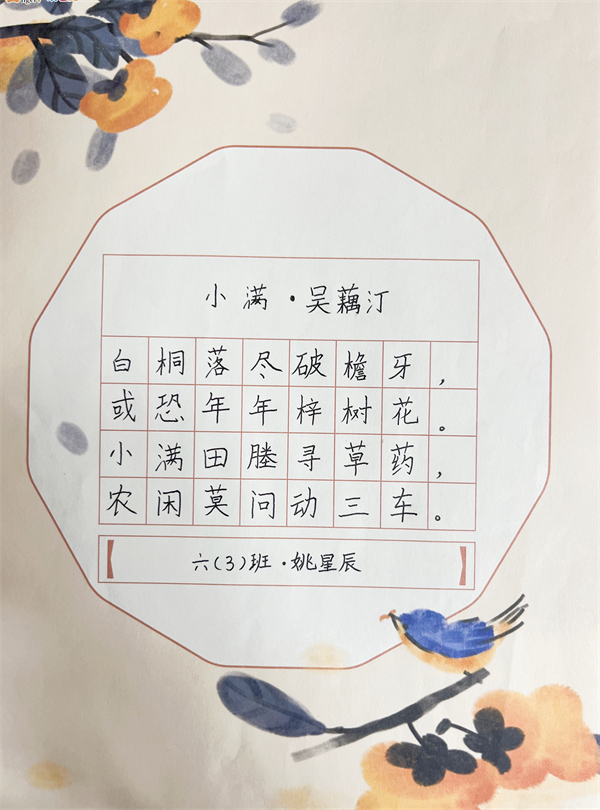 小满·吴藕汀
白桐落尽破檐牙，
或恐年年梓树花。
小满田塍寻草药，
农闲莫问动三车。
六(3)班·姚星辰